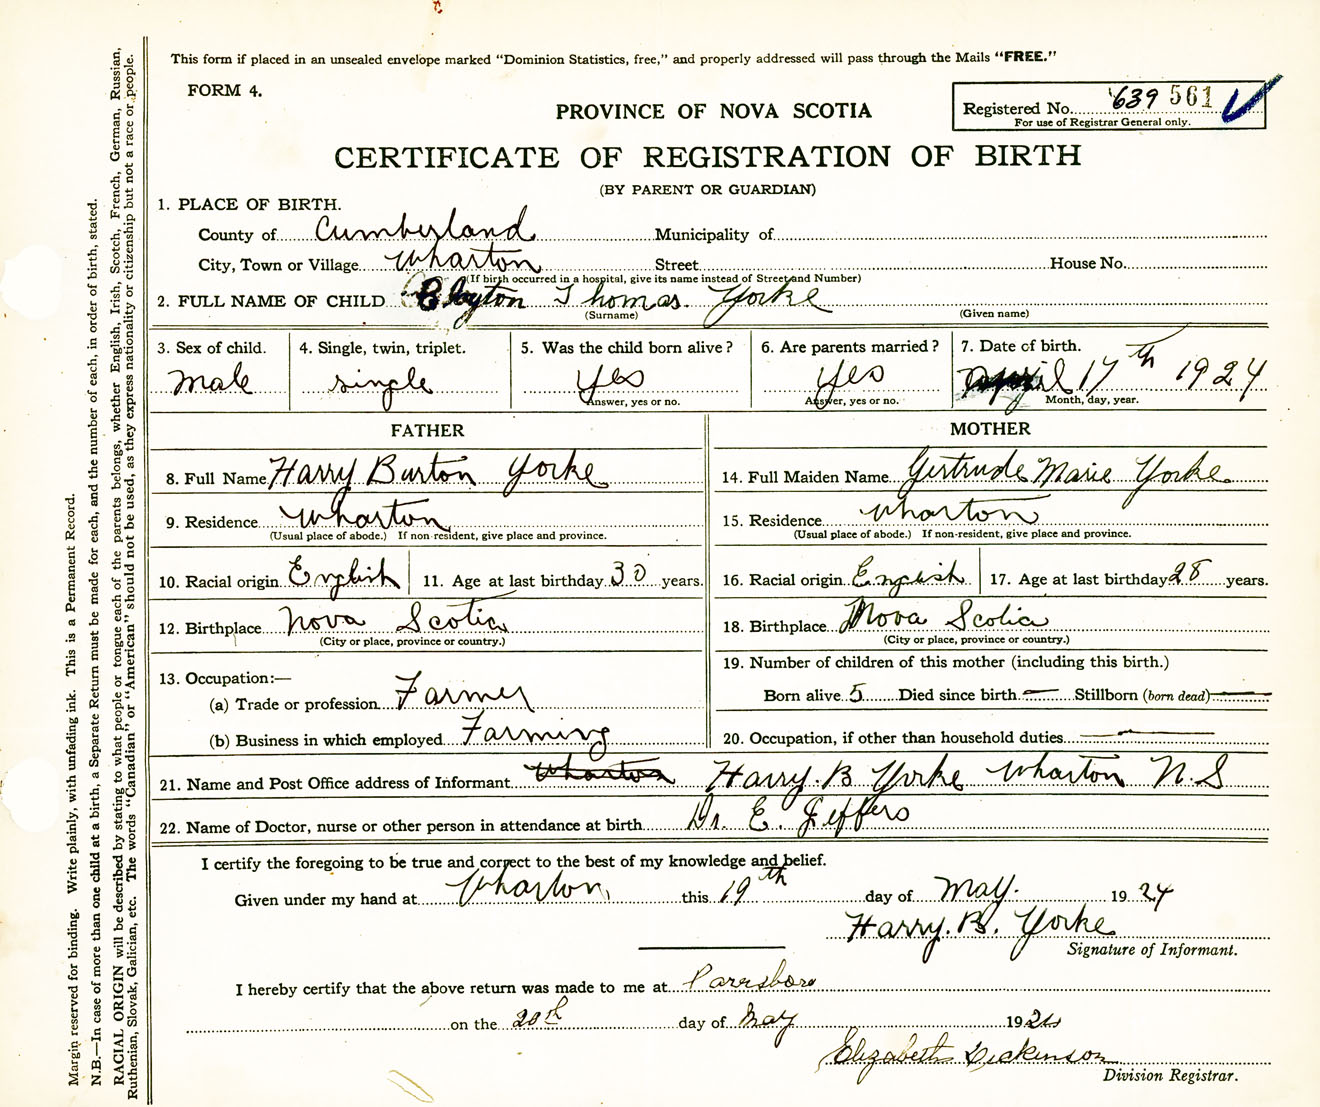 This form if placed in an unsealed envelope marked "Dominion Statistics, free," and properly addressed will pass through the Mails "FREE."
FORM 4.
Registered No. 639 561
For use of Registrar General only.
PROVINCE OF NOVA SCOTIA
CERTIFICATE OF REGISTRATION OF BIRTH
(BY PARENT OR GUARDIAN)
1. PLACE OF BIRTH.
County of Cumberland Municipality of
City, Town or Village Wharton Street House No.
(If birth occurred in a hospital, give its name instead of Street and Number)
2. FULL NAME OF CHILD Clayton Thomas. Yorke
(Surname) (Given name)
3. Sex of child. 4. Single, twin, triplet. 5. Was the child born alive? 6. Are parents married? 7. Date of birth.
Male single Yes Yes April 17th 1924
Answer, yes or no. Answer, yes or no. Month, day, year.
FATHER MOTHER
8. Full Name Harry Burton Yorke 14. Full Maiden Name Gertrude Marie Yorke.
9. Residence Wharton 15. Residence Wharton
(Usual place of abode.) If non-resident, give place and province. (Usual place of abode.) If non-resident, give place and province.
10. Racial origin English 11. Age at last birthday 30 years. 16. Racial origin English 17. Age at last birthday 28 years.
12. Birthplace Nova Scotia 18. Birthplace Nova Scotia
(City or place, province or country.) (City or place, province or country.)
13. Occupation:— 19. Number of children of this mother (including this birth.)
(a) Trade or profession Farmer Born alive 5 Died since birth — Stillborn (born dead) —
(b) Business in which employed Farming 20. Occupation, if other than household duties —
21. Name and Post Office address of Informant Wharton Harry. B Yorke Wharton N. S
22. Name of Doctor, nurse or other person in attendance at birth Dr. E. Jeffers
I certify the foregoing to be true and correct to the best of my knowledge and belief.
Given under my hand at Wharton, this 19th day of May. 1924
Harry. B. Yorke
Signature of Informant.
I hereby certify that the above return was made to me at Parrsboro
on the 20th day of May 1924
Elizabeth Dickinson
Division Registrar.
Margin reserved for binding. Write plainly, with unfading ink. This is a Permanent Record.
N.B.—In case of more than one child at a birth, a Separate Return must be made for each, and the number of each, in order of birth, stated.
RACIAL ORIGIN will be described by stating to what people or tongue each of the parents belongs, whether English, Irish, Scotch, French, German, Russian,
Ruthenian, Slovak, Galician, etc. The words "Canadian" or "American" should not be used, as they express nationality or citizenship but not a race or people.